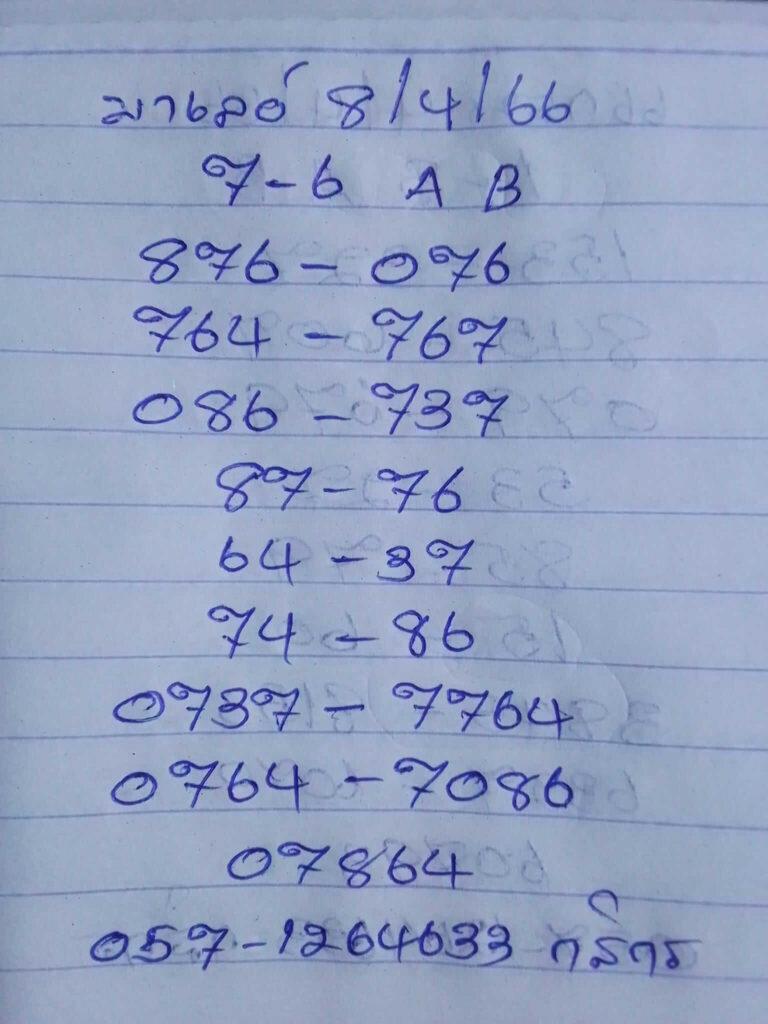 มาเลย์ 8/4/66
7-6 A B
876 - 076
764 - 767
086 - 737
87 - 76
64 - 37
74 - 86
0737 - 7764
0764 - 7086
07864
057-1264633